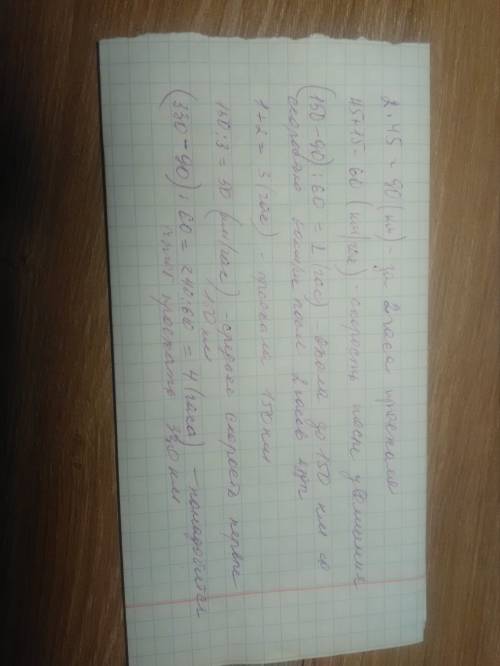 2·45 = 90 (км) - за 2 часа проехали
45+15 = 60 (км/час) - скорость после увеличения
(150-90):60 = 2 (час) - ехали до 150 км со
скоростью после 2 часов
1+2 = 3 (час) - проехали 150 км
150:3 = 50 (км/час) - средняя скорость первые
150 км
(330-90):60 = 240:60 = 4 (часа) - понадобится
чтобы проехать 330 км